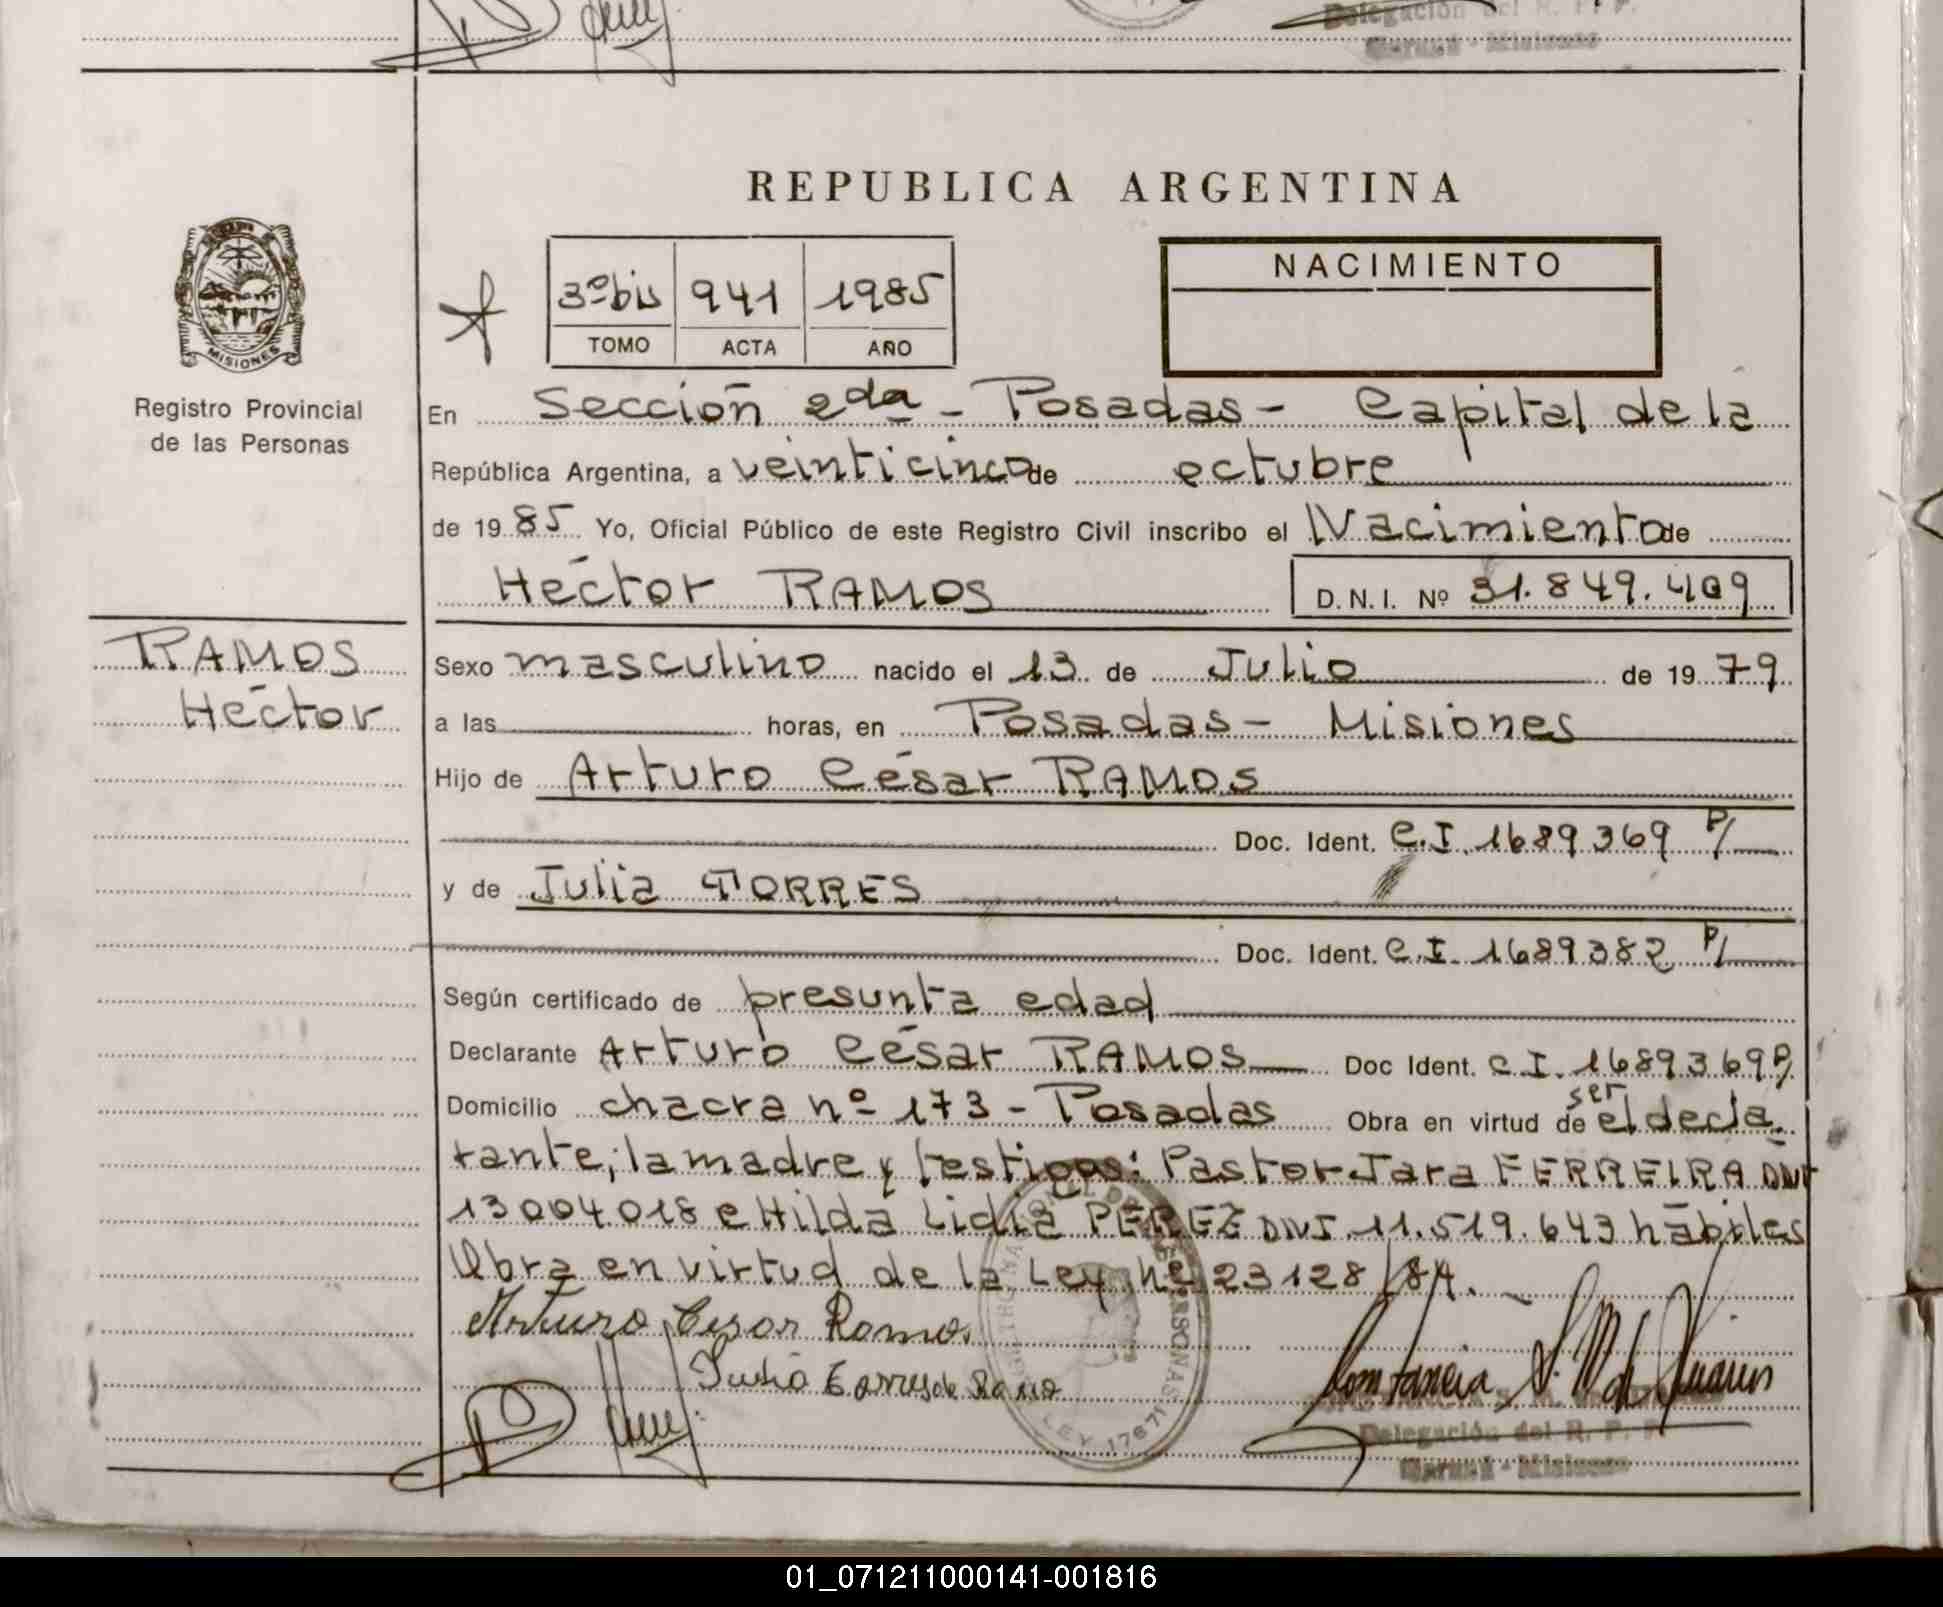 Delegación del R. P. P.
Misiones
REPUBLICA ARGENTINA
MISIONES
Registro Provincial
de las Personas
3º bis 941 1985
TOMO ACTA AÑO
NACIMIENTO
En Sección 2da - Posadas - Capital de la
República Argentina, a veinticinco de octubre
de 1985 Yo, Oficial Público de este Registro Civil inscribo el Nacimiento de
Héctor RAMOS D.N.I. Nº 31.849.409
RAMOS
Héctor
Sexo masculino nacido el 13 de Julio de 1979
a las horas, en Posadas - Misiones
Hijo de Arturo César RAMOS
Doc. Ident. C.I. 1689369 P/
y de Julia TORRES
Doc. Ident. C.I. 1689382 P/
Según certificado de presunta edad
Declarante Arturo César RAMOS Doc Ident. C.I. 1689369 P/
Domicilio chacra nº 173 - Posadas Obra en virtud de ser el decla
rante, la madre y testigos: Pastor Jara FERREIRA DNI
13004018 e Hilda Lidia PEREZ DNI. 11.519.643 hábiles
Obra en virtud de la Ley Nº 23128/84.
Arturo Cesar Ramos
Julia Torres de Ramo
LEY 17671
Delegación del R. P. P.
Misiones
01_071211000141-001816